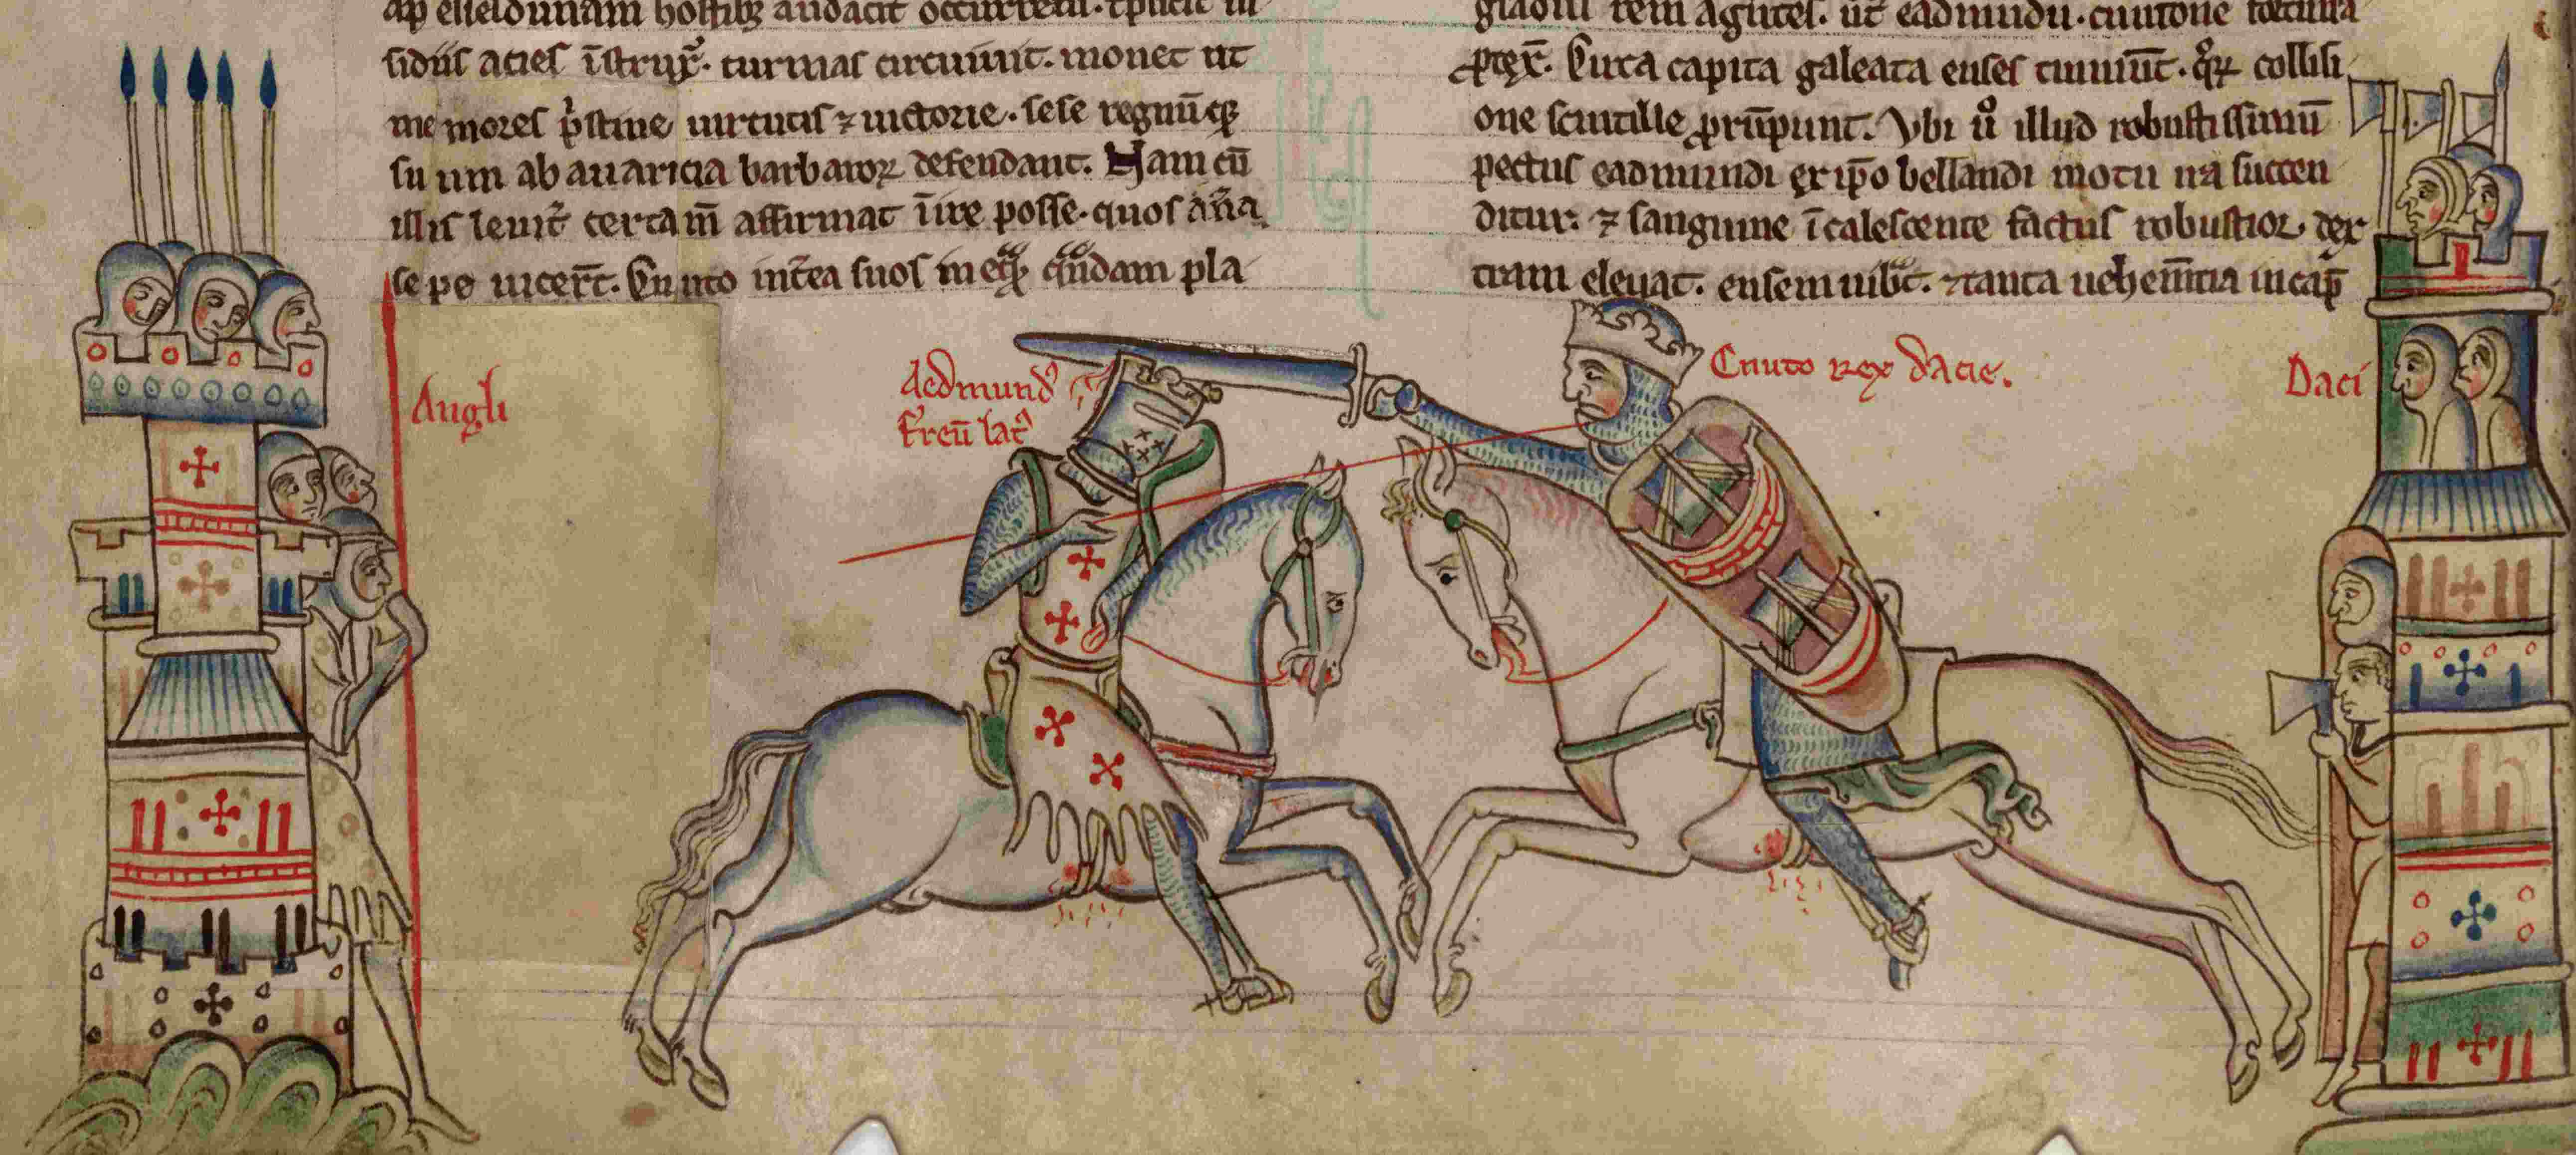 ap eſſeſdunam hoſtibꝫ audacit̉ occurrens. tͥplicit̉ in
ſidiis acies īſtruxͭ. turmas circuiuit. monet ut
memores pͥſtine uirtutis ⁊ uictorie. ſeſe regnūqꝫ
ſuum ab auaricia barbaroꝝ defendant. Nam cū
illis leuit̉ certam̄ affirmat īire poſſe. quos antͣea
ſepe uicer̄t. Cnuto int̄ea ſuos in
pla
gladiis rem agūt
ut eadmūdū. cnutone
ꝓtex̄. Circa capita galeata enſes tinniūt.
colliſi
one ſcintille ꝓrūpunt. Vbi ůo illud robuſtiſſimū
pectus eadmundi ex ip̄o bellandi motu ira ſuccen
ditur. ⁊ ſanguine īcaleſcente factus robuſtior. dex
tram eleuat. enſem uibͣt. ⁊ tanta uehem̄tia in cap̄
Angli
Aedmundꝰ
ferrū latꝰ
Cnuto rex dacie.
Daci